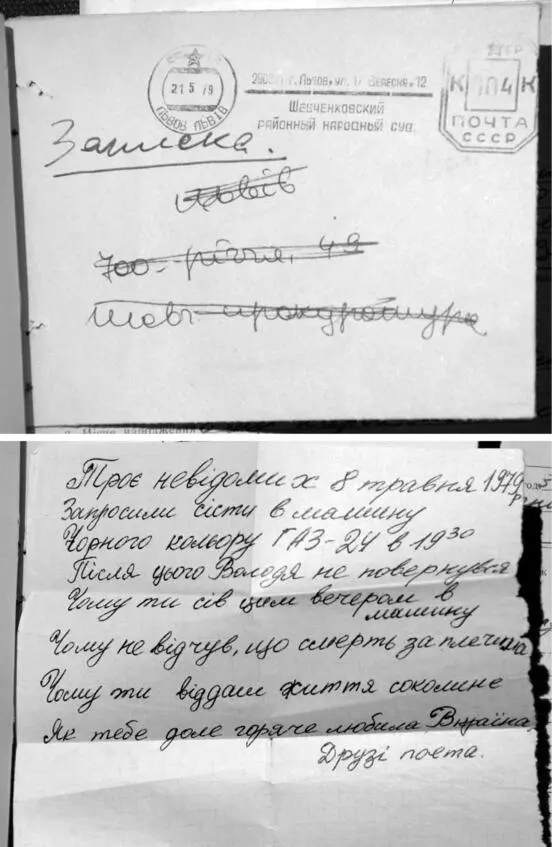 21 5 79
ЛЬВОВ ЛЬВІВ
г. Львов, ул. 17 Вересня, 12
ШЕВЧЕНКОВСКИЙ
РАЙОННЫЙ НАРОДНЫЙ СУД
К 4 К
ПОЧТА
СССР
Записка.
Львів
700-річчя, 49
Шевч прокуратура
Троє невідомих 8 травня 1979
Запросили сісти в машину
Чорного кольору ГАЗ-24 в 19³⁰
Після цього Володя не повернувся
Чому ти сів цим вечером в
машину
Чому не відчув, що смерть за плечима
Чому ти віддаш життя соколине
Як тебе доле горяче любила Вкраїна
Друзі поета.